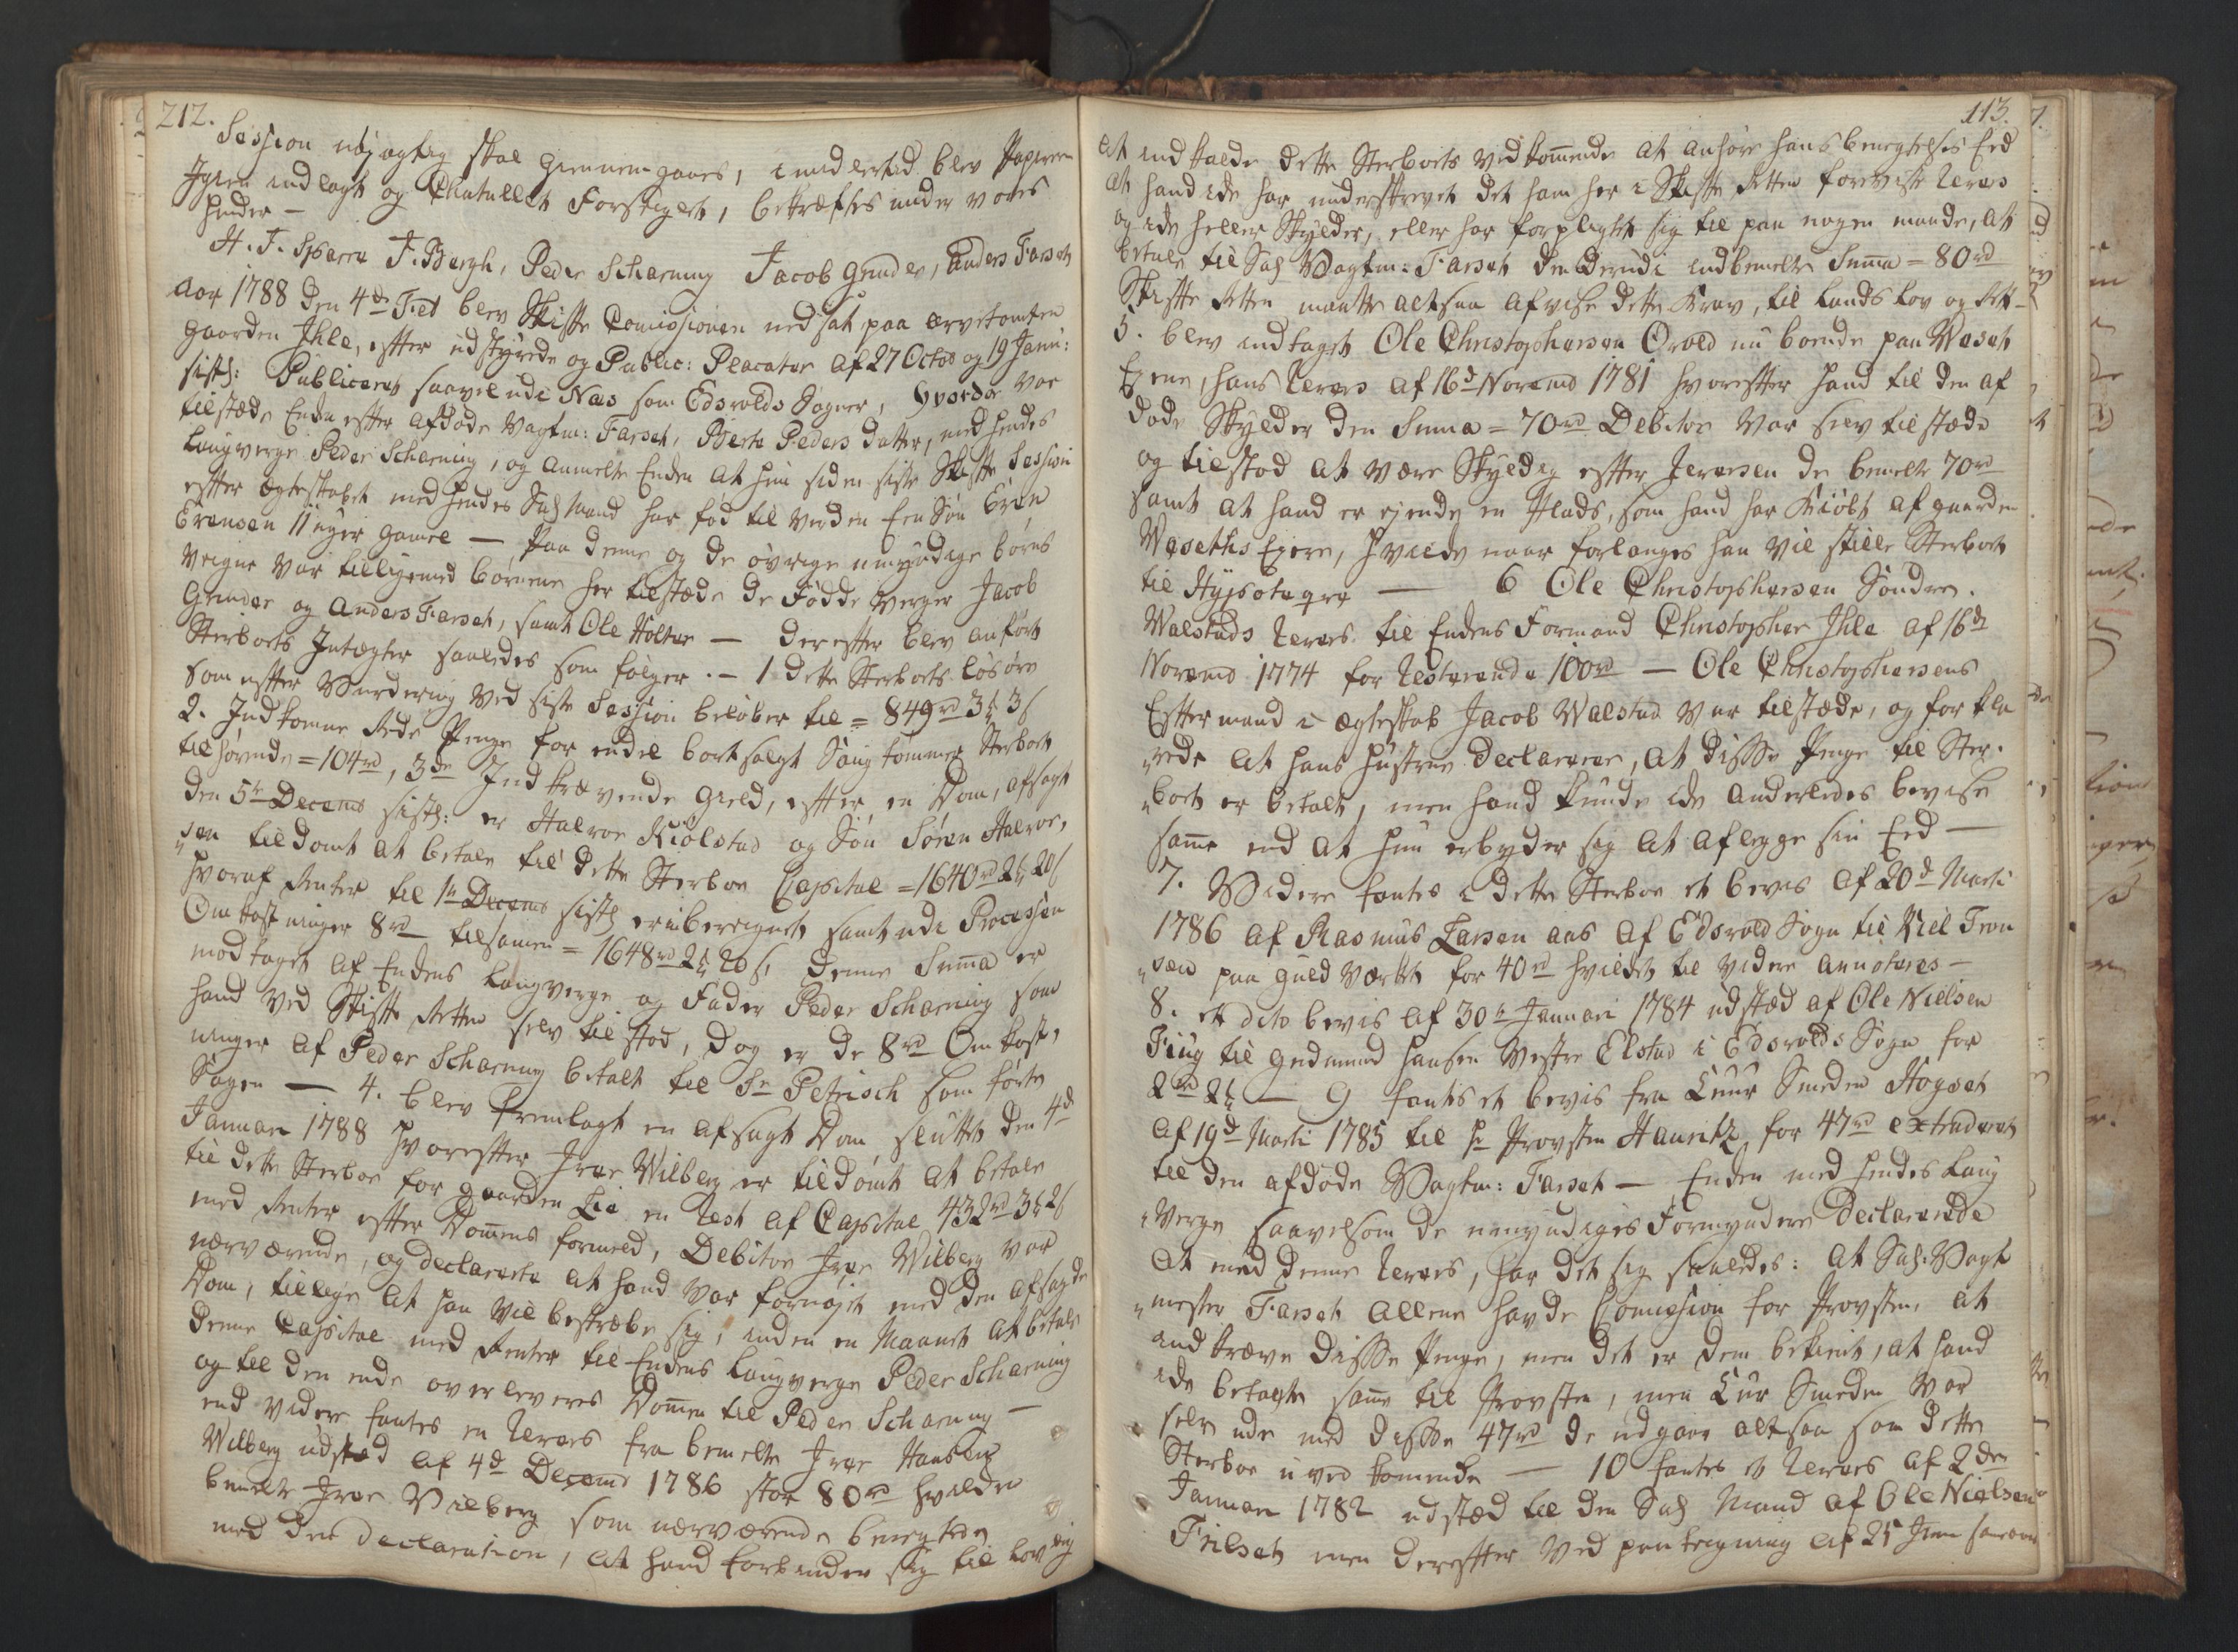 212.
Session nøjagtig skal giennemgaaes, imidlertid blev Papirerne
Igien indlagt og Chatullet Forseiglet, bekræftes under vores
Hænder —
H. J. Sparre J. Bergh, Peder Scharning Jacob Grinder, Anders Farset
Aar 1788 den 4de Feb blev Skifte Comissionen nedsat paa arvetomten
Gaarden Ihle, efter udstyrede og Public: Placater af 27 Octob og 19 Janu:
sistl: Publiceret saavel udi Næs som Edsvolds Sogner, hvorda var
tilstæde Enken efter afdøde Vagtm: Farset, Berte Peders datter, med hendes
Laugverge Peder Scharning, og anmelte Enken at hun siden siste Skifte Session
efter Ægteskabet med hendes Sal Mand har fød til Verden Een Søn Even
Evensen 11 uger gamel — Paa denne og de øvrige umyndige børns
Vegne var tilligemed børnene her tilstæde de Fødde Verger Jacob
Grinder og Anders Farset, samt Ole Holter — Derefter blev anført
Sterboets Intægter saaledes som følger. — 1 Dette Sterboets løsøre
som efter Vurdering ved siste Session beløber til = 849 rd 3 ƶ 3 s
2. Indkomne Rede Penge for endeel bortsolgt Saug tømmer Sterboet
tilhørende = 104 rd, 3de Indkrævende Gield, efter en Dom, afsagt
den 5te Decemb sistl: er Halvor Kiølstad og Søn Søren Halvor,
„sen tildømt at betale til dette Sterboe Capital = 1640 rd 2 ƶ 20 s
hvoraf Renter til 11 Decemb sistl er iberegnet samt udi Processen
Omkostninger 8 rd tilsamen = 1648 rd 2 ƶ 20 s, denne Suma er
modtaget af Enkens Laugverge og Fader Peder Scharning som
hand ved Skifte Retten selv tilstod, dog er de 8 rd Omkost,
ninger af Peder Scharning betalt til Sr Petrisch som førte
Sagen — 4. blev fremlagt en afsagt Dom, sluttet den 4de
Januari 1788 hvorefter Iver Wilberg er tildømt at betale
til dette Sterboe for gaarden Lie en Rest af Capital 432 rd 3 ƶ 2 s
med Renter efter Dommens formeld, Debitor Iver Wilberg var
nærværende, og declarerte at hand var fornøjet med den afsagde
Dom, tillige at han vil bestræbe sig, inden en Maanet at betale
denne Capital med Renter til Enkens Laugverge Peder Scharning
og til den ende overleveres Dommen til Peder Scharning —
end videre fantes en Revers fra bemelte Iver Hansen
Wilberg udsted af 4de Decemb 1786 stor 80 rd hvilken
bemelte Iver Wilberg som nærværende benegtede
med den declaration, at hand forbinder sig til Lovlig
113.
at indkalde dette Sterboets vedkommende at anhøre hans benegtelses Eed
at hand ikke har underskrevet det ham her i Skifte Retten foreviste Revers
og ikke heller Skylder, eller har forpligtet sig til paa nogen maade, at
betale til Sal Vagtm: Farset den derudi indbemelte Suma = 80 rd
Skifte Retten maatte altsaa afvise dette Krav, til Lands Lov og Ret —
5. blev indtaget Ole Christophersen Qvold nu boende paa Waset
Ejene, hans Revers af 16de Novemb 1781 hvorefter hand til den af
døde Skylder den Suma = 70 rd Debitor var selv tilstæde
og tilstod at være Skyldig efter Reversen de bemelte 70 rd
samt at hand er ejende en Plads, som hand har Kiøbt af gaarden
Wasethe Ejere, hvilke naar forlanges han vil stille Sterboet
til Hypoteqve — 6 Ole Christophersen Søndre.
Walstads Revers til Enkens Formand Christopher Ihle af 16de
Novemb 1774 for Resterende 100 rd — Ole Christophersens
Eftermand i Ægteskab Jacob Walstad var tilstæde, og forkla
„rede at hans hustrue declarerer, at disse Penge til Ster.
„boet er betalt, men hand kunde ikke anderledes bevise
same end at hun erbyder sig at aflegge sin Eed —
7. Videre fantes i dette Sterboe et bevis af 20de Marti
1786 af Rasmus Larsen aas af Edsvold Sogn til Niel Tron
„sen paa Guld Værket for 40 rd hvilket til videre annoteres —
8. et dito bevis af 30te Januari 1784 udsted af Ole Nielsen
Fiug til Gudmund Hansen Vestre Elstad i Edsvolds Sogn for
2 rd 2 ƶ — 9 fantes et bevis fra Cuur Smeden Hogset
af 19de Marti 1785 til Hr Provsten Hauritz for 47 rd extraderet
til den afdøde Vagtm: Farset — Enken med hendes Laug
„verge saavelsom de umyndiges Formyndere declarerede
at med denne Revers, har det sig saaledes: at Sal. Vagt
„mester Farset allene havde Comission for Provsten, at
indkræve disse Penge, men det er dem bekient, at hand
ikke betalte same til Provsten, men Cur Smeden var
selv ude med disse 47 rd de udgaar altsaa som dette
Sterboe uvedkomende — 10 fantes et Revers af 2den
Januari 1782 udsted til den Sal Mand af Ole Nielsen
Frilset men derefter ved paategning af 25 Juni samaar